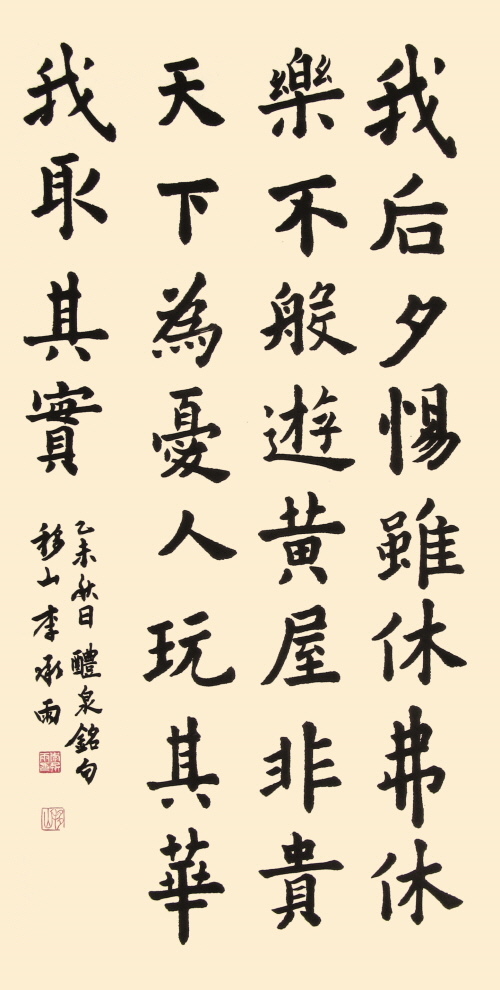 我后夕惕雖休弗休
樂不般遊黄屋非貴
天下為憂人玩其華
我取其實
乙未秋日醴泉銘句
稌山李承雨